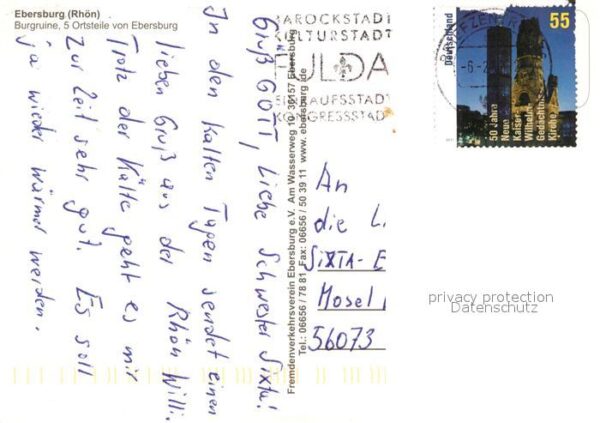 Ebersburg (Rhön)
Burgruine, 5 Ortsteile von Ebersburg
Gruß GOTT, Liebe Schwester Sixta!
In den kalten Typen sendet einen
lieben Gruß aus der Rhön Willi.
Trotz der Kälte geht es mir
zur Zeit sehr gut. Es soll
ja wieder wärmer werden.
Fremdenverkehrsverein Ebersburg e.V. Am Wasserweg 10, 36157 Ebersburg
Tel.: 06656 / 78 81 Fax: 06656 / 50 39 11 www.ebersburg.de
AROCKSTADT
KULTURSTADT
FULDA
EINKAUFSSTADT
KONGRESSSTADT
Deutschland
55
50 Jahre
Neue
Kaiser-
Wilhelm-
Gedächtnis-
Kirche
An
die L.
SIXTA-E
Mosel
56073
privacy protection
Datenschutz